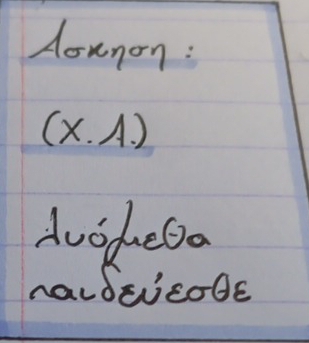 Ασκηση :
(Χ.Α.)
λυόμεθα
παιδεύεσθε